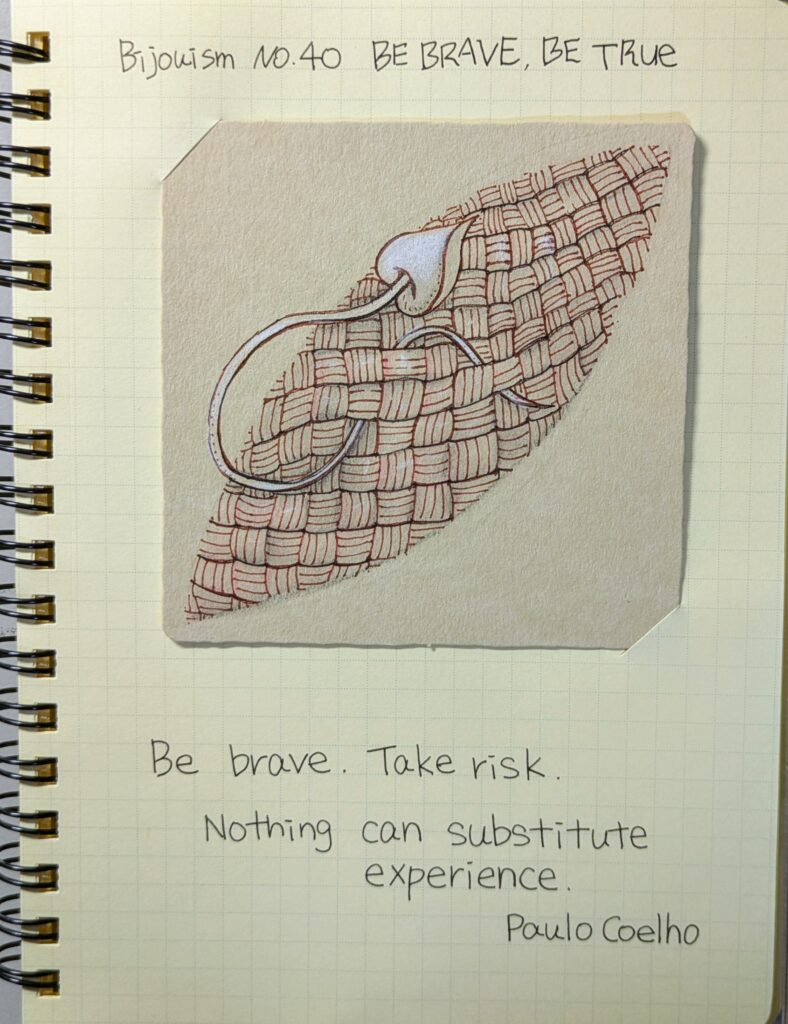 Bijouism NO.40 BE BRAVE, BE TRUe
Be brave. Take risk.
Nothing can substitute
experience.
Paulo Coelho